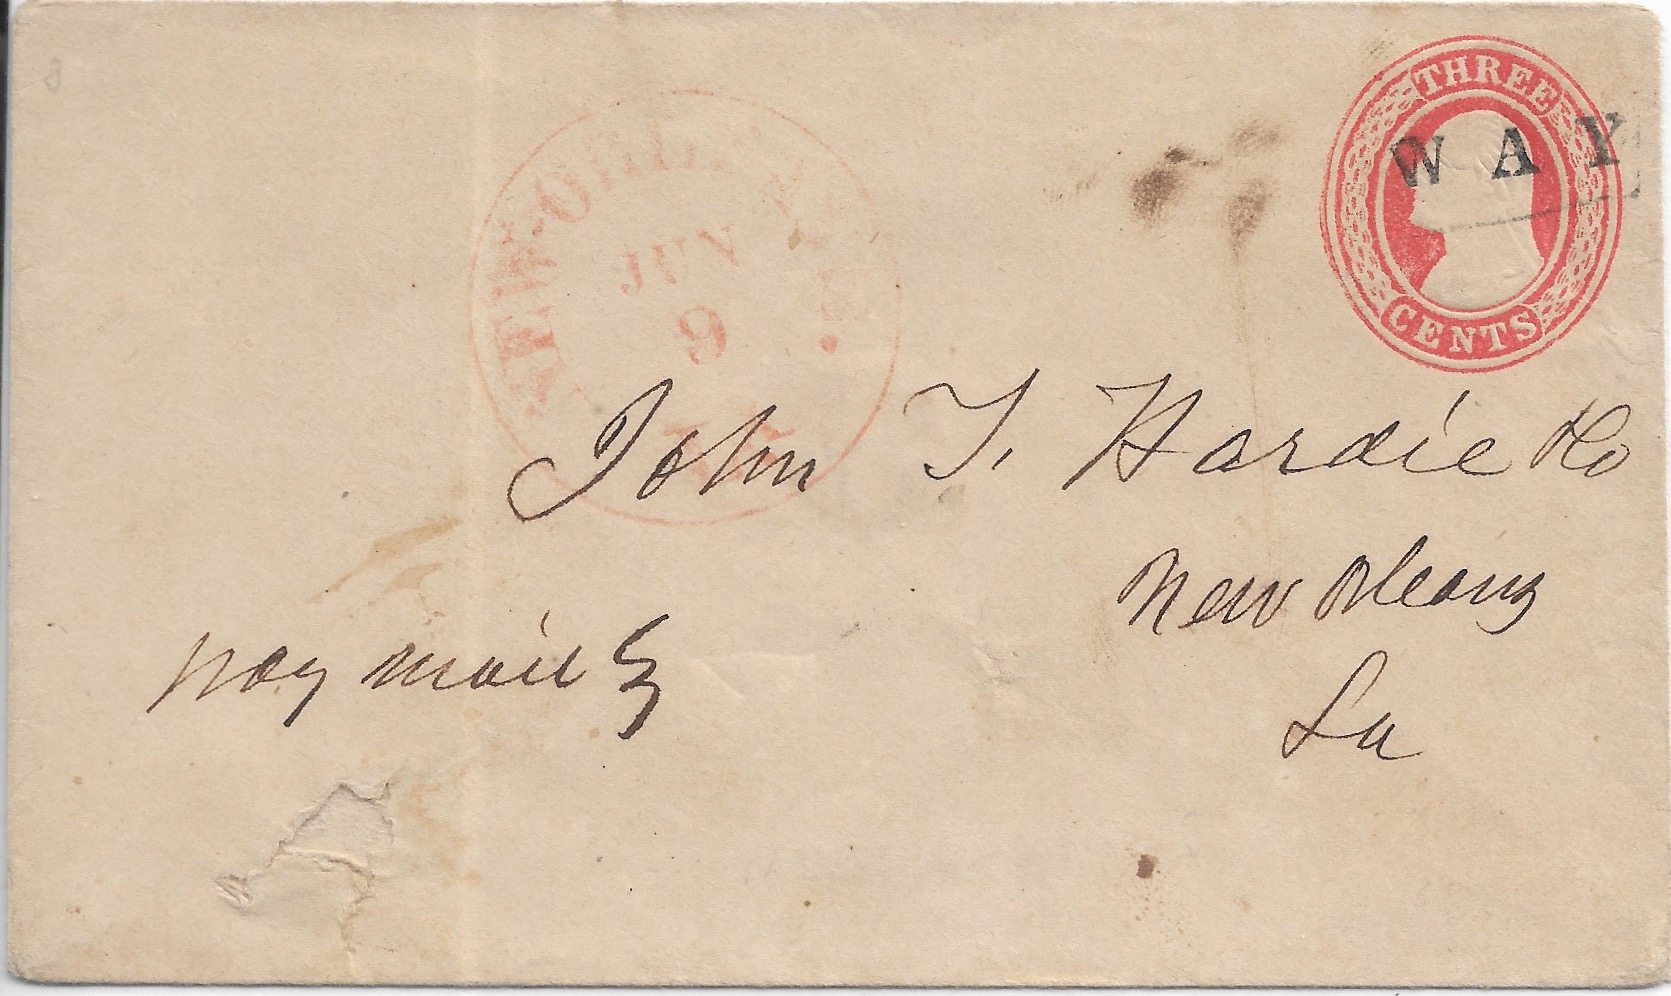 THREE
CENTS
WAY
NEW-ORLEANS
JUN
9
John T. Hardie & Co
New Orleans
La
way mail